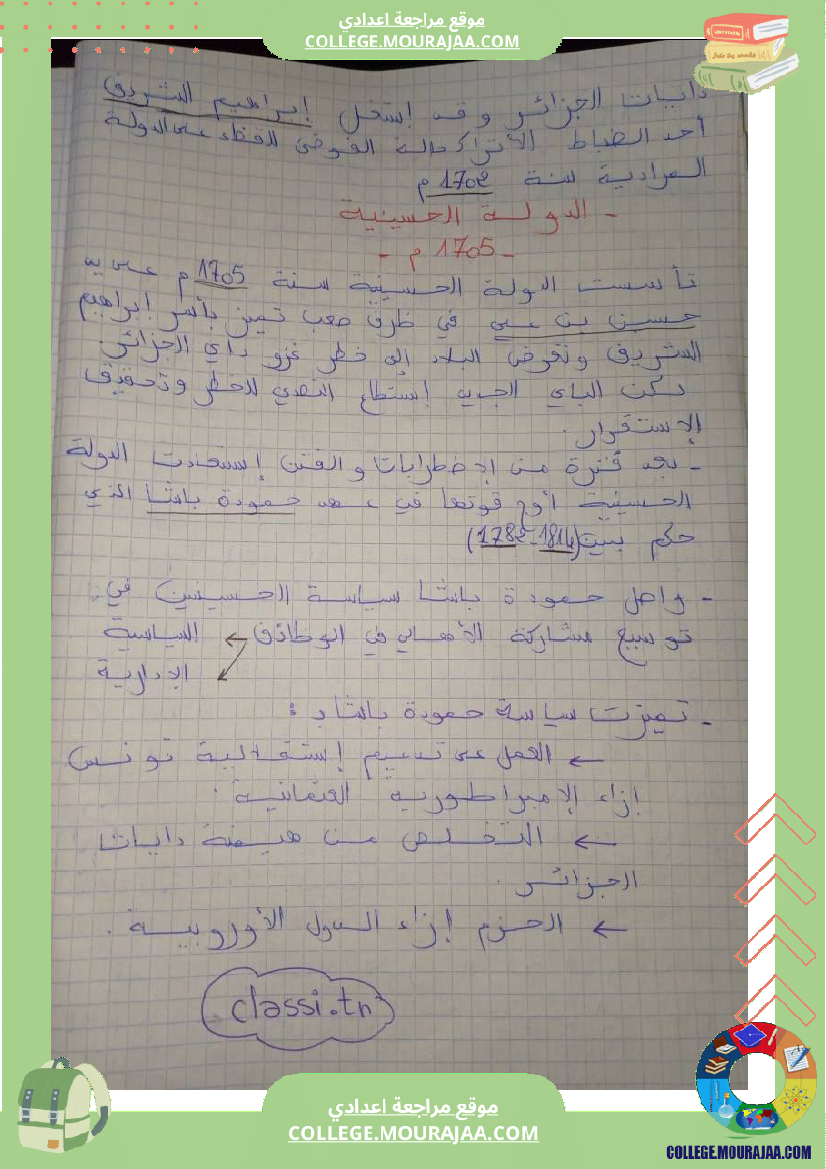 موقع مراجعة اعدادي
COLLEGE.MOURAJAA.COM
دايات الجزائر وقد إستغل إبراهيم الشريف
أحد الضباط الأتراك حالة الفوضى للقضاء على الدولة
المرادية سنة 1702 م
- الدولة الحسينية
- 1705 م -
تأسست الدولة الحسينية سنة 1705 م على يد
حسين بن علي في ظرف صعب تميز بأسر إبراهيم
الشريف وتعرض البلاد إلى خطر غزو داي الجزائر.
لكن الباي الجديد إستطاع التصدي للخطر وتحقيق
الإستقرار.
- بعد فترة من الإضطرابات والفتن إستعادت الدولة
الحسينية أوج قوتها في عهد حمودة باشا الذي
حكم بين (1782-1814)
- واصل حمودة باشا سياسة الحسينين في
توسيع مشاركة الأهالي في الوظائف ← السياسية
الإدارية
- تميزت سياسة حمودة باشا بـ :
← العمل على تدعيم إستقلالية تونس
إزاء الإمبراطورية العثمانية.
← التخلص من هيمنة دايات
الجزائر.
← الحزم إزاء الدول الأوروبية.
classi.tn
موقع مراجعة اعدادي
COLLEGE.MOURAJAA.COM
COLLEGE.MOURAJAA.COM